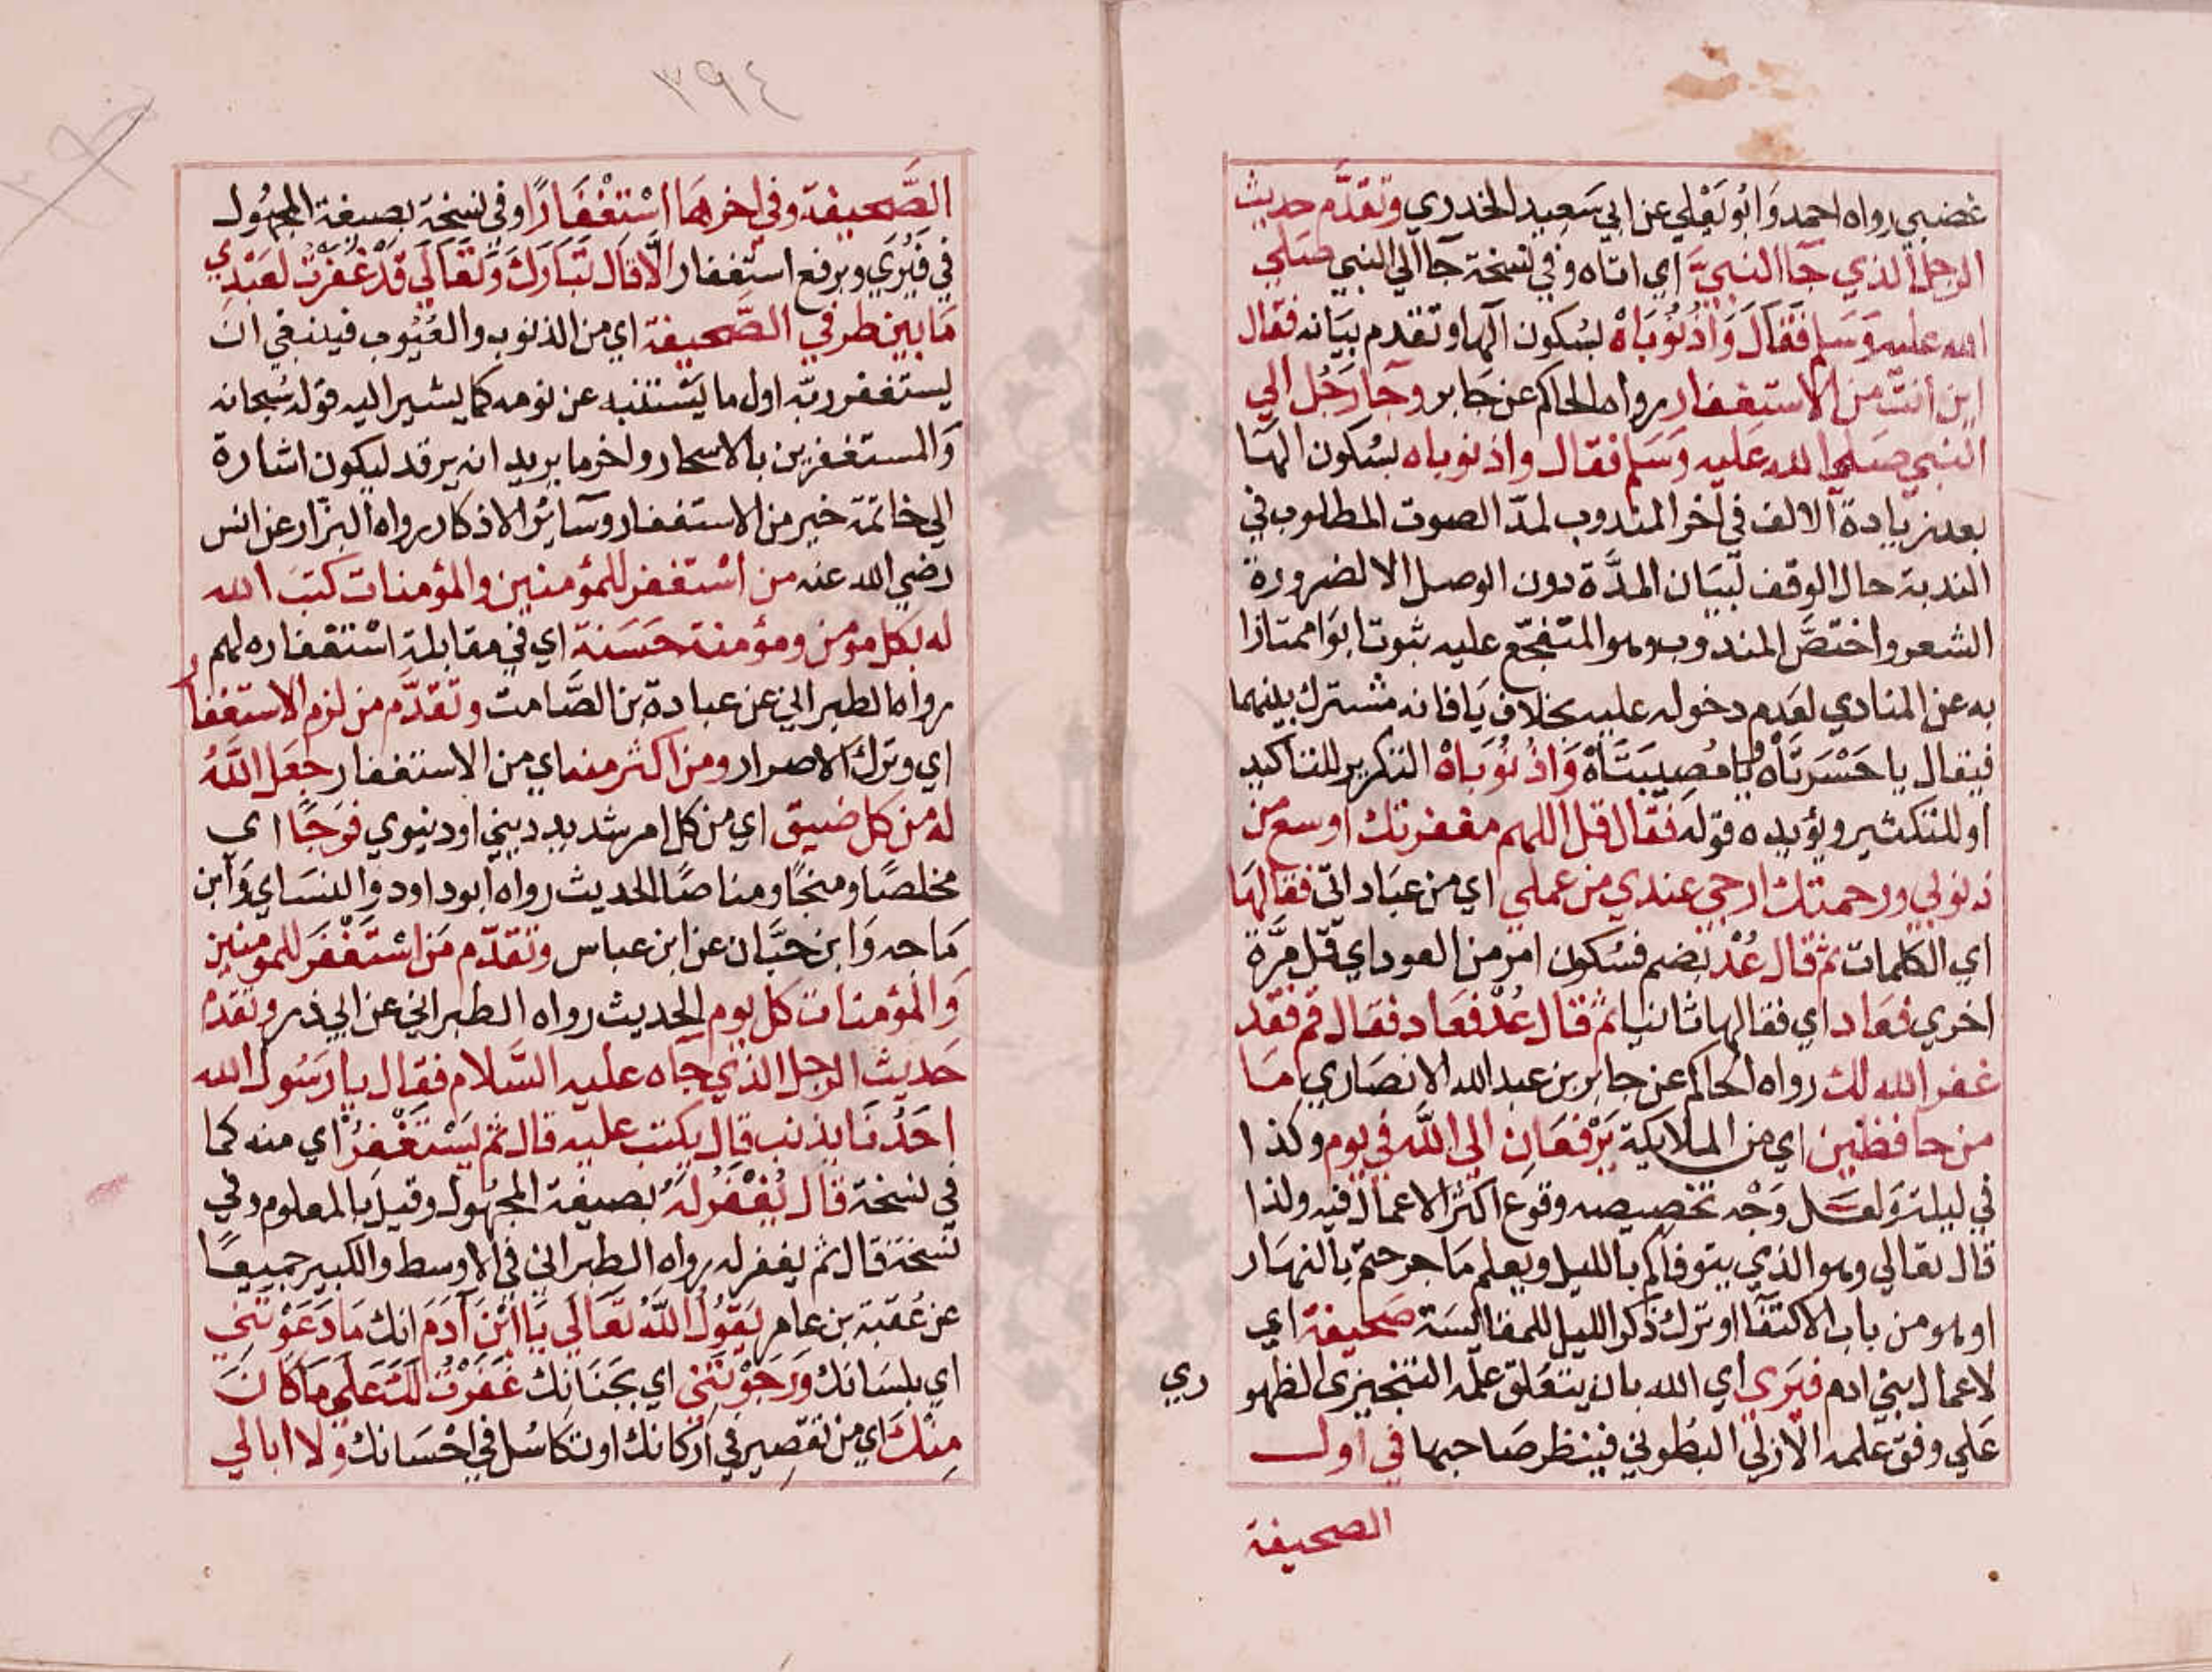 غضبي رواه احمد وَابُو يَعْلي عن ابي سَعِيد الخدري وتقدَّم حديث
الرجل الذي جَآ النبيَّ اي اتاه وفي نسخة جآ الي النبي صَلي
الله عليه وَسَلم فَقَالَ وَاذُنُوبَاهْ بسُكون الهَا وتقدم بيَانه فقال
اين انت من الاستغفار رواه الحاكم عن جابر وجآ رَجُل الي
النبي صَلي الله عَليه وَسَلم فقال واذنوباه بسُكون الهَا
بعد زيادة الالف في اخر المندوب لمدّ الصوت المطلوب في
الندبة حال الوقف لبيَان المدَّة دون الوصل الا لضرورة
الشعر واختصَّ المندوب وهو المتفجّع عليه بثبوت ابوَا ممتازا
به عن المنادي لعَدم دخوله عليه بخلاف يَا فانه مشترك بينهما
فيقال يا حَسْرَتَاه ويا مُصِيبَتَاهْ وَاذُنُوبَاهْ التكرير للتاكيد
او للتكثير ويؤيده قوله فقال قل اللهم مغفرتك اوسع من
ذنوبي ورحمتك ارجي عندي من عملي اي من عبَاداتي فقالهَا
اي الكلمات ثم قال عُدْ بضم فسُكون امر من العود اي قل مَرَّة
اخري فعَاد اي فقالها ثانيا ثم قال عُدْ فعَاد فقال قم فقد
غفر الله لك رواه الحاكم عن جابر بن عبد الله الانصَاري مَا
من حافظين اي من الملايكة يَرْفعَانِ الي اللَّه في يوم وكذا
في ليلة وَلعَل وَجْه تخصِيصه وقوع اكثر الاعمال فيه ولذا
قال تعالي وهو الذي يتوفاكم بالليل ويعلم مَا جرحتم بالنهَار
او هو من باب الاكتفآ او ترك ذكر الليل للمقاليسَة صَحيفة اي
لاعمال بني ادم فيَرى اي الله بان يتعَلق علمه التنجيزي الظهو
ري
عَلي وفق عَلمه الازلي البطوني فينظر صَاحبها في اول
الصحيفة
٣٩٤
الصَّحيفة وفي اخرهَا اسْتِغْفَارًا وفي نسخة بصيغة المجهُول
في فيُرَي وبرفع استغفار الّا قال تبَارَكَ وَتَعَالَي قَدْ غَفَرْتُ لعَبْدِي
مَا بين طرفي الصَّحيفة اي من الذنوب والعُيُوب فينبغي ان
يستغفر ربّه اول ما يَسْتنبه عن نومه كما يشير اليه قوله سُبحانه
وَالمستغفرين بالاسحار واخر ما يريد ان يرقد ليكون اشارة
الي خاتمة خير من الاستغفار وسآئر الاذكار رواه البزار عن انس
رضي الله عنه من اسْتغفر للمؤمنين والمؤمنات كتبَ الله
له بكل مؤمن ومؤمنة حَسَنة اي في مقابلة اسْتغفاره لهم
رواه الطبراني عن عبادة بن الصَّامت وتقدَّم من لزم الاستغفار
اي وترك الاصرار ومن اكثر منه اي من الاستغفار جعَل اللَّهُ
له من كل ضيق اي من كل امر شديد ديني او دنيوي فرَجًا اي
مخلصًا ومنجًا ومناصًا الحديث رواه ابو داود وَالنسَاي وَابن
مَاجه وَابن حبَّان عن ابن عباس وتقدّم مَن اسْتَغْفَرَ للمومنين
وَالمؤمنات كل يوم الحديث رواه الطبراني عن ابي ذر وتقدم
حَديث الرجل الذي جآه عليه السَّلام فقال يا رَسُول الله
احَدُنَا يذنب قال يكتب عليه قال ثم يَسْتَغْفِرُ اي منه كما
في نسخة قال يُغْفَرُ لهُ بصيغة المجهُول وقيل بالمعلوم وفي
نسخة قال ثم يغفر له رواه الطبراني في الاوسط والكبير جميعًا
عن عُقبة بن عامر يَقُولُ اللَّهُ تَعَالَي يَا ابْنَ آدَمَ انك مَا دَعَوْتَني
اي بلسَانك وَرَجَوْتَني اي بجَنَانِك غفَرْتُ لكَ عَلَي مَا كَانَ
مِنْكَ اي من تقصِير في ارْكانك او تكاسُل في احْسَانك وَلا ابالي